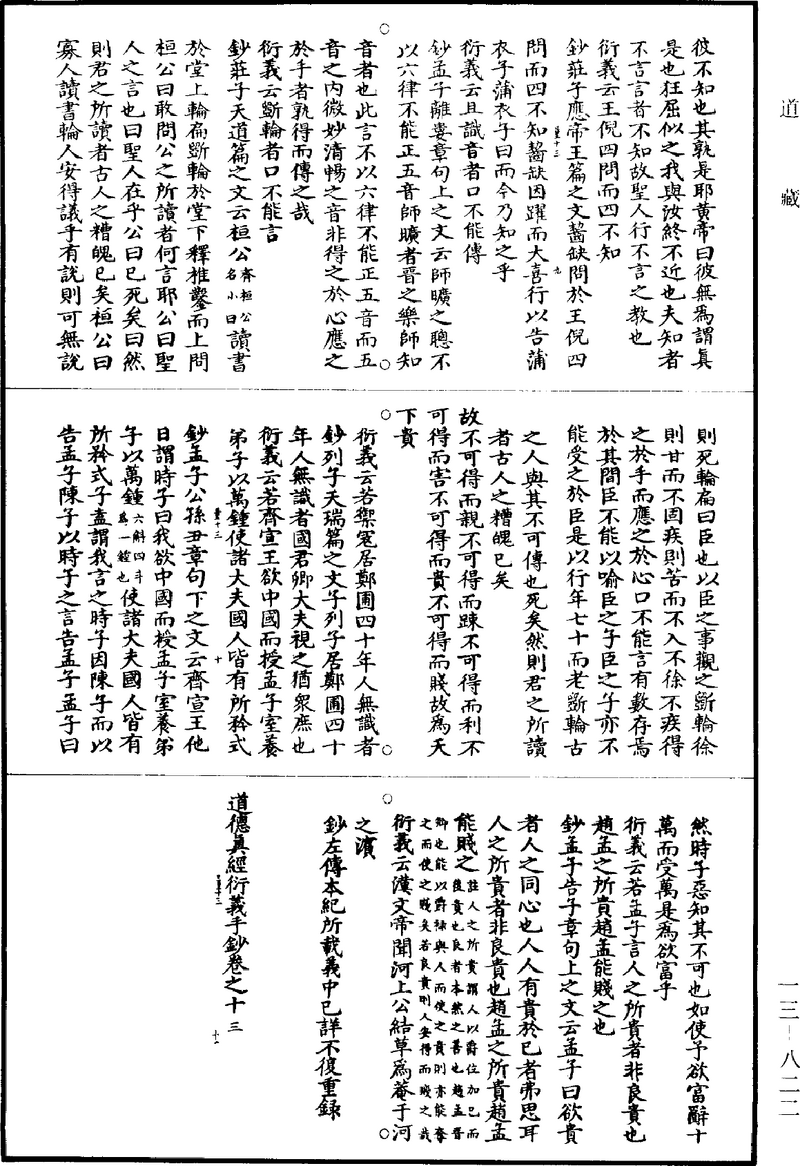 道藏
彼不知也其孰是耶黄帝曰彼無爲謂眞
是也狂屈似之我與汝終不近也夫知者
不言言者不知故聖人行不言之教也
衍義云王倪四問而四不知
鈔莊子應帝王篇之文齧缺問於王倪四
問而四不知齧缺因躍而大喜行以告蒲
衣子蒲衣子曰而今乃知之乎
衍義云且識音者口不能傳
鈔孟子離婁章句上之文云師曠之聰不
以六律不能正五音師曠者晉之樂師知
音者也此言不以六律不能正五音而五
音之内微妙清暢之音非得之於心應之
於手者孰得而傳之哉
衍義云斲輪者口不能言
鈔莊子天道篇之文云桓公齊桓公名小白讀書
於堂上輪扁斲輪於堂下釋椎鑿而上問
桓公曰敢問公之所讀者何言耶公曰聖
人之言也曰聖人在乎公曰已死矣曰然
則君之所讀者古人之糟魄已矣桓公曰
寡人讀書輪人安得議乎有說則可無說
則死輪扁曰臣也以臣之事觀之斲輪徐
則甘而不固疾則苦而不入不徐不疾得
之於手而應之於心口不能言有數存焉
於其間臣不能以喻臣之子臣之子亦不
能受之於臣是以行年七十而老斲輪古
之人與其不可傳也死矣然則君之所讀
者古人之糟魄已矣
故不可得而親不可得而踈不可得而利不
可得而害不可得而貴不可得而賤故爲天
下貴
衍義云若禦寇居鄭圃四十年人無識者
鈔列子天瑞篇之文子列子居鄭圃四十
年人無識者國君卿大夫視之猶衆庶也
衍義云若齊宣王欲中國而授孟子室養
弟子以萬鍾使諸大夫國人皆有所矜式
鈔孟子公孫丑章句下之文云齊宣王他
日謂時子曰我欲中國而授孟子室養弟
子以萬鍾六斛四斗爲一鍾也使諸大夫國人皆有
所矜式子盍謂我言之時子因陳子而以
告孟子陳子以時子之言告孟子孟子曰
然時子惡知其不可也如使予欲富辭十
萬而受萬是爲欲富乎
衍義云若孟子言人之所貴者非良貴也
趙孟之所貴趙孟能賤之也
鈔孟子告子章句上之文云孟子曰欲貴
者人之同心也人人有貴於己者弗思耳
人之所貴者非良貴也趙孟之所貴趙孟
能賤之註人之所貴謂人以爵位加己而後貴也良者本然之善也趙孟晉卿也能以爵祿與人而使之貴則亦能奪之而使之賤矣若良貴則人安得而賤之哉
衍義云漢文帝聞河上公結草爲菴于河
之濱
鈔左傳本紀所載義中已詳不復重録
道德眞經衍義手鈔卷之十三
一三—八二二